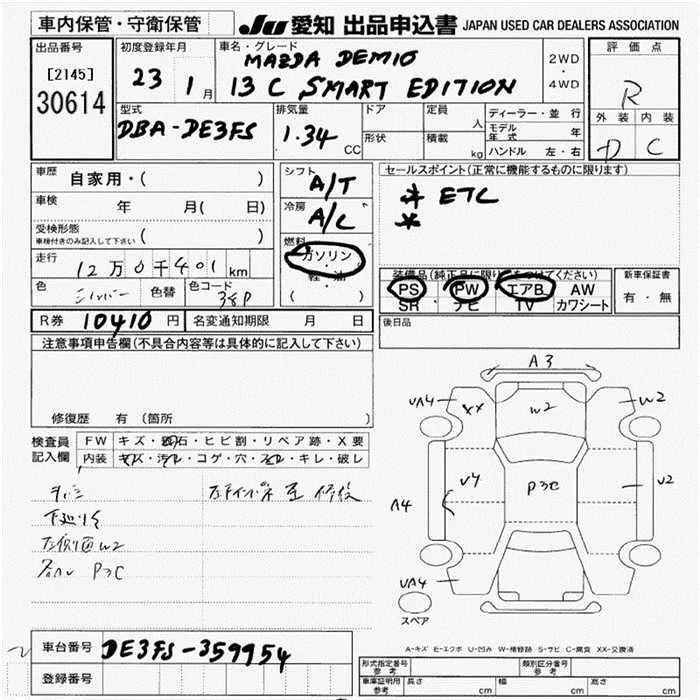 車内保管・守衛保管
JU 愛知 出品申込書 JAPAN USED CAR DEALERS ASSOCIATION
出品番号
[2145]
30614
初度登録年月
23 1月
車名・グレード
MAZDA DEMIO
13C SMART EDITION
2WD
・
4WD
評価点
R
外装 内装
D C
型式
DBA-DE3FS
排気量
1.34 CC
ドア
形状
定員
人
積載
kg
ディーラー・並行
モデル年式 年
ハンドル 左・右
車歴
自家用・( )
車検
年 月( 日)
受検形態
車検付きのみ記入して下さい ( )
走行
12万0千401km
色
シルバー
色替
色コード
38P
シフト
A/T
冷房
A/C
燃料
ガソリン
・
軽・油
セールスポイント(正常に機能するものに限ります)
ETC
装備品(純正品に限り○をつけてください)
PS PW エアB AW
SR ナビ TV カワシート
新車保証書
有・無
R券 10410円
名変通知期限 月 日
後日品
注意事項申告欄(不具合内容等は具体的に記入して下さい)
修復歴 有 (箇所 )
検査員
記入欄
FW キズ・飛石・ヒビ割・リペア跡・X要
内装 キズ・汚れ・コゲ・穴・スレ・キレ・破レ
下廻りS
左側面W2
P3C
A3
UA4
XX
W2
W2
A4
U4
P3C
U2
UA4
スペア
A-キズ E-エクボ U-凹み W-補修跡 S-サビ C-腐食 XX-交換済
車台番号
DE3FS-359954
登録番号
形式指定番号
参考
類別区分番号
参考
車庫証明用
参考
長さ cm
幅 cm
高さ cm